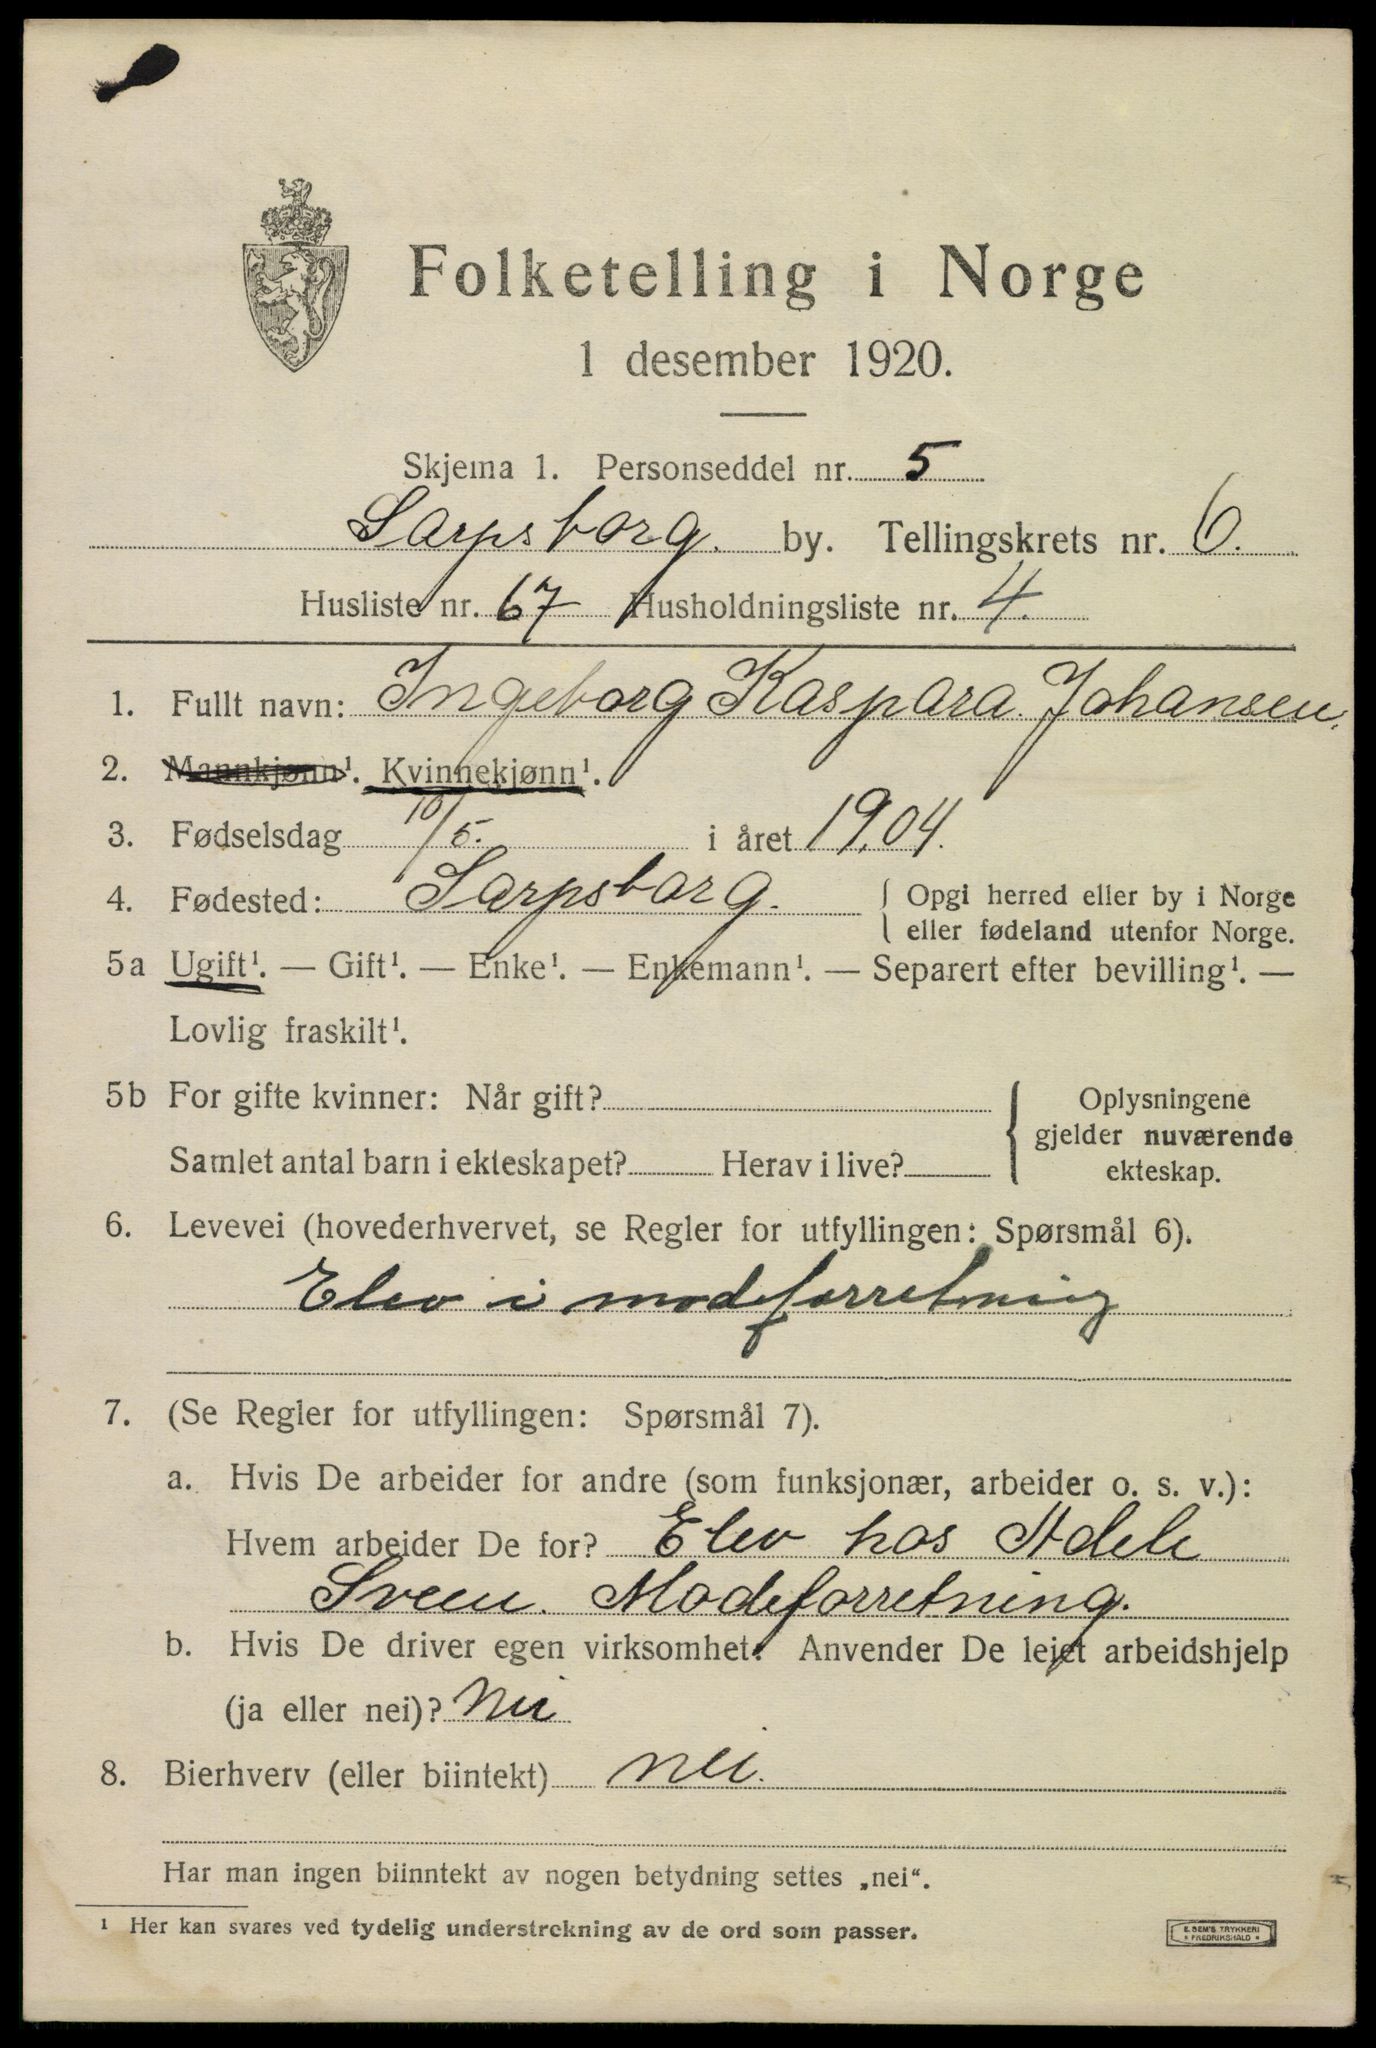 Folketelling i Norge
1 desember 1920.
Skjema 1. Personseddel nr. 5
Sarpsborg. by. Tellingskrets nr. 6.
Husliste nr. 67 Husholdningsliste nr. 4.
1. Fullt navn: Ingeborg Kaspara Johansen.
2. Mannkjønn¹. Kvinnekjønn¹.
3. Fødselsdag 10/5. i året 1904.
4. Fødested: Sarpsborg. { Opgi herred eller by i Norge
eller fødeland utenfor Norge.
5a Ugift¹. — Gift¹. — Enke¹. — Enkemann¹. — Separert efter bevilling¹. —
Lovlig fraskilt¹.
5b For gifte kvinner: Når gift? { Oplysningene
gjelder nuværende
Samlet antal barn i ekteskapet? Herav i live? ekteskap.
6. Levevei (hovederhvervet, se Regler for utfyllingen: Spørsmål 6).
Elev i modeforretning
7. (Se Regler for utfyllingen: Spørsmål 7).
a. Hvis De arbeider for andre (som funksjonær, arbeider o. s. v.):
Hvem arbeider De for? Elev hos Adele
Sveen. Modeforretning.
b. Hvis De driver egen virksomhet: Anvender De leiet arbeidshjelp
(ja eller nei)? Nei
8. Bierhverv (eller biintekt) nei.
Har man ingen biinntekt av nogen betydning settes „nei“.
¹ Her kan svares ved tydelig understrekning av de ord som passer.
E. SEM'S TRYKKERI
FREDRIKSHALD